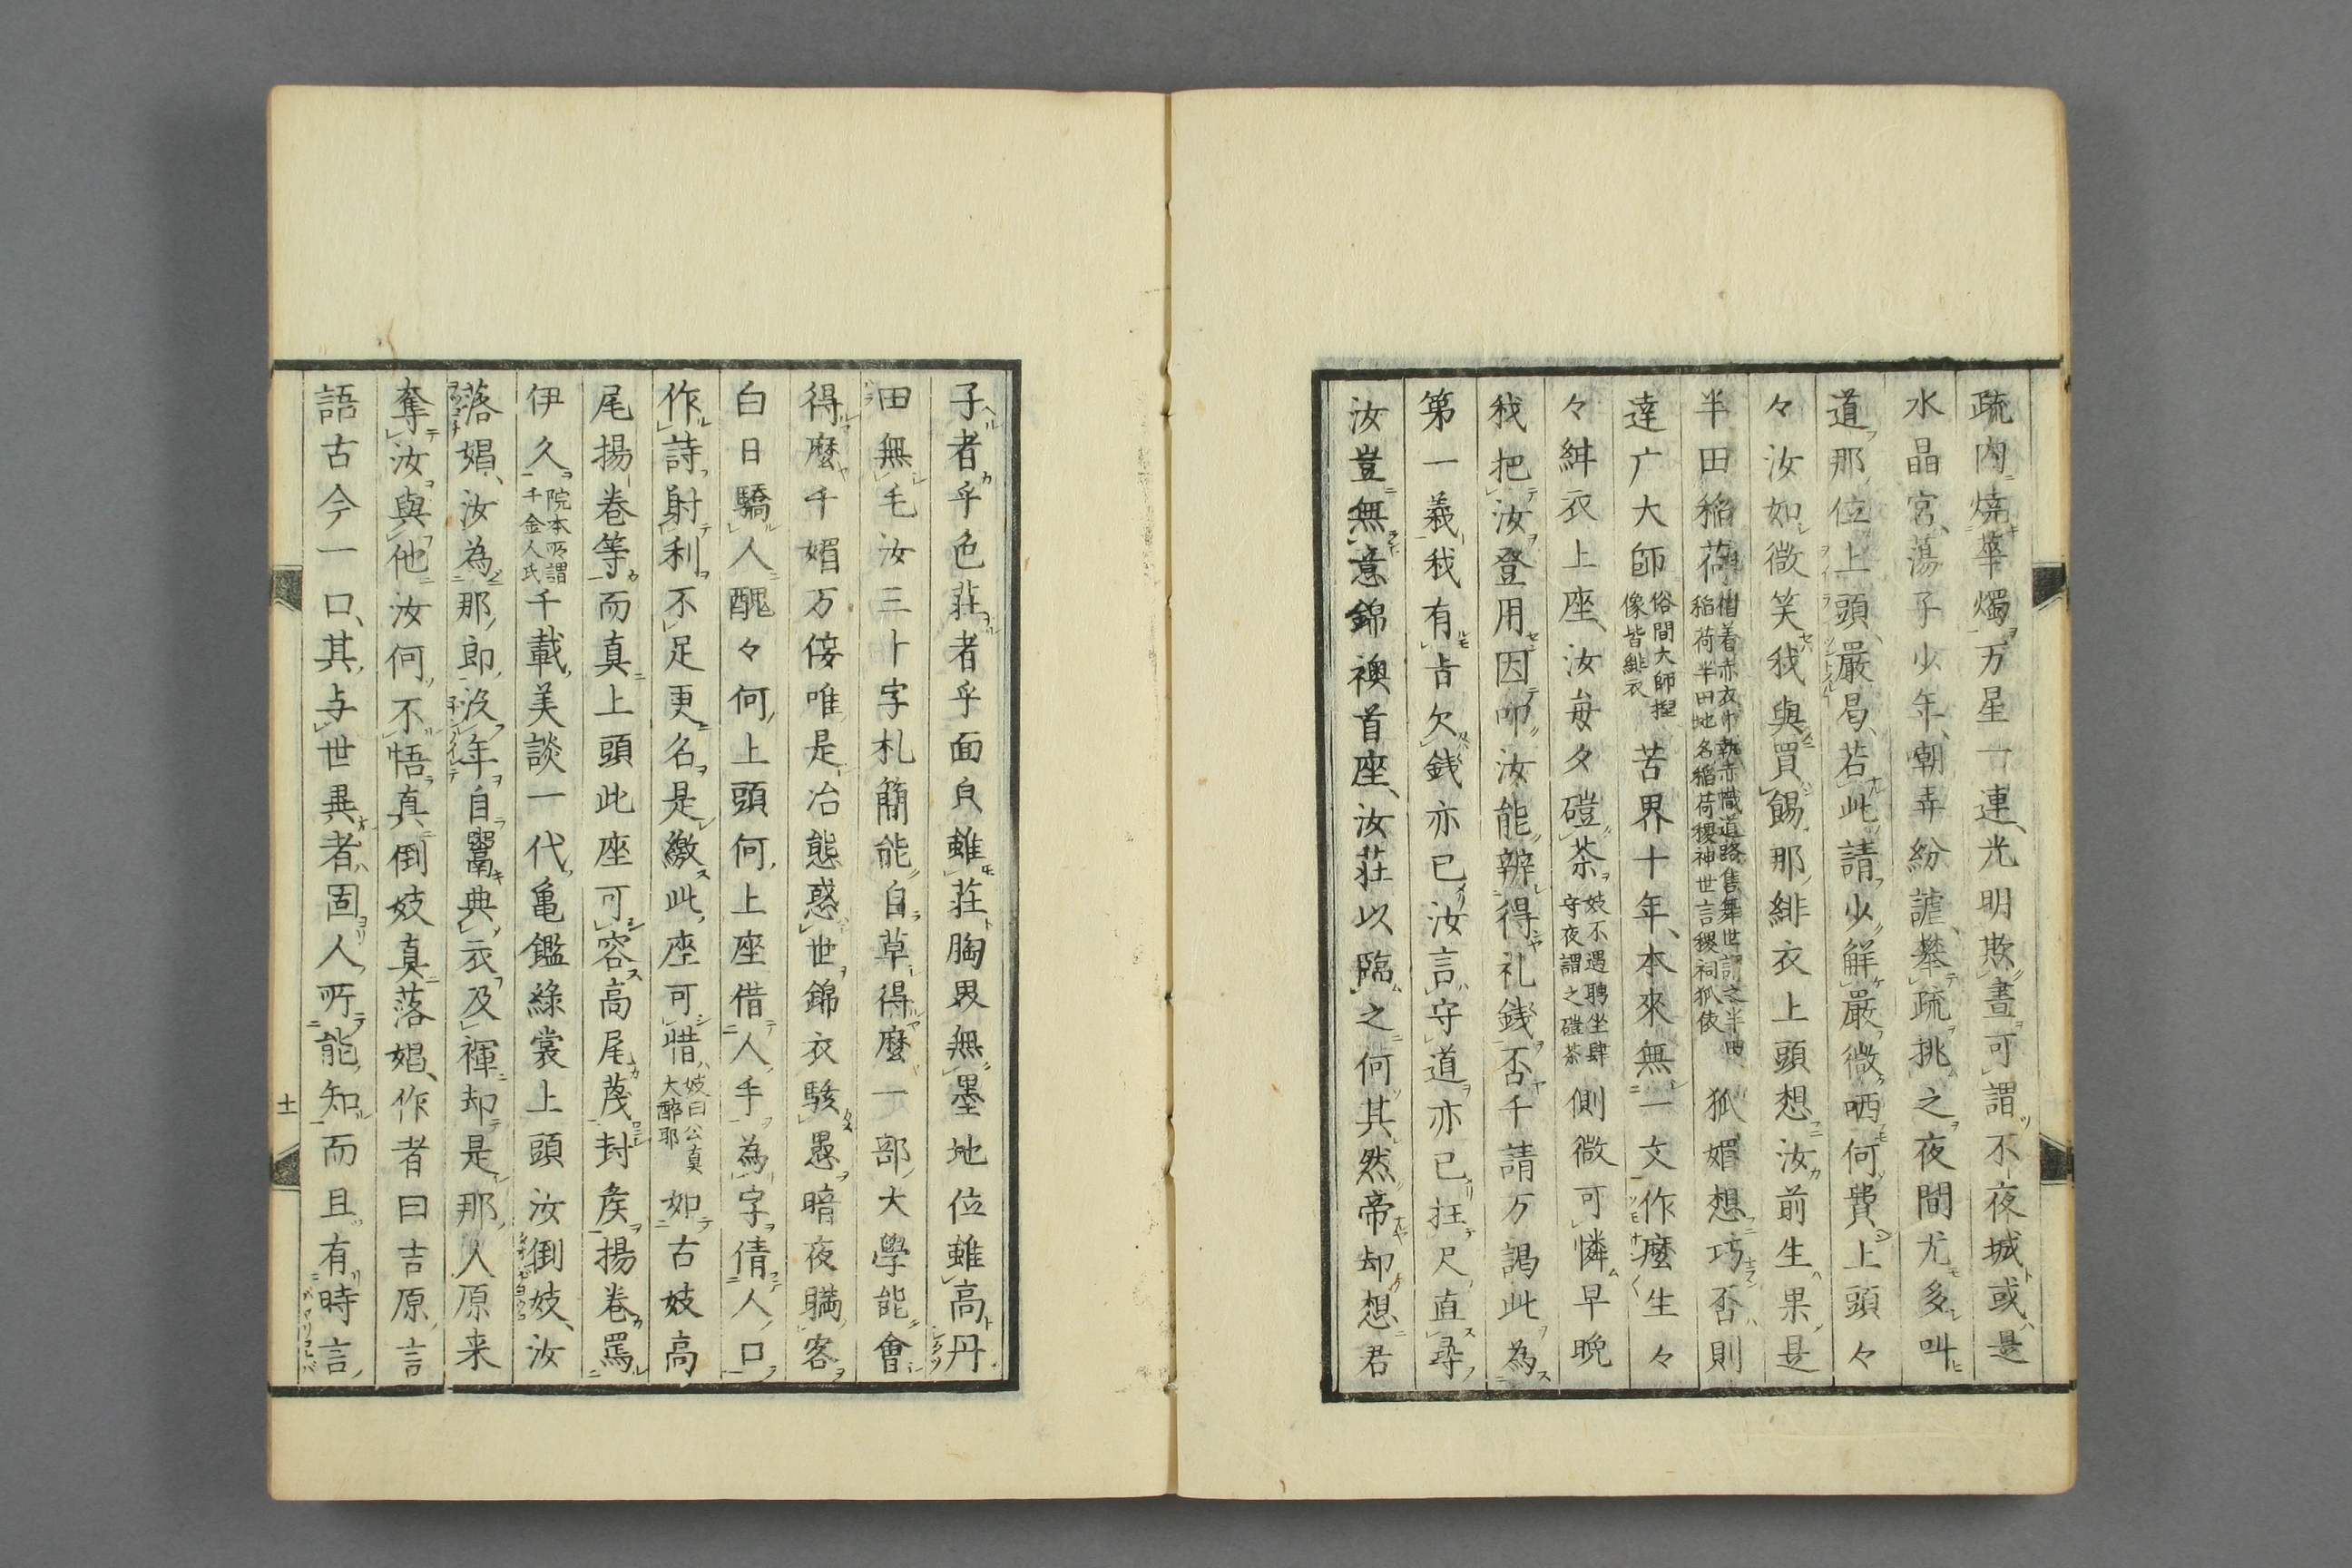 疏内燒華燭万星一連光明欺晝可謂不夜城或是
水晶宮蕩子少年朝弄紛謔攀疏挑之夜間尤多叫
道那位上頭嚴曷若此請少解嚴微哂何費上頭々
々汝如微笑我與買餳那緋衣上頭想汝前生果是
半田稲荷借着赤衣巾執赤幟道路售舞世謂之半田稲荷半田地名稲荷稷神世言稷祠狐依狐媚想巧否則
達广大師俗間大師揑像皆緋衣苦界十年本來無一文作麼生々
々緋衣上座汝毎夕磑茶妓不遇聘坐肆守夜謂之磑茶側微可憐早晩
我把汝登用因叩汝能辨得礼銭否千請万謁此為
第一義我有占欠銭亦已汝言守道亦已抂尺直尋
汝豈無意錦襖首座汝莊以臨之何其然帝却想君
子者乎色莊者乎面皃雖莊胸畏無墨地位雖高丹
田無毛汝三十字札簡能自草得麼一部大學能會
得麼千媚万傄唯是冶態惑世錦衣駭愚暗夜瞞客
白日驕人醜々何上頭何上座借人手為字倩人口
作詩射利不足更名是繳此座可惜妓曰公真大酔耶如古妓高
尾揚巻等而真上頭此座可容高尾蔑封矦揚巻罵
伊久院本所謂千金人氏千載美談一代亀鑑綠裳上頭汝倒妓汝
落娼汝為那郎沒年自鬻典衣及褌却是那人原来
奪汝與他汝何不悟真倒妓真落娼作者曰吉原言
語古今一口其与世異者固人所能知而且有時言
十一